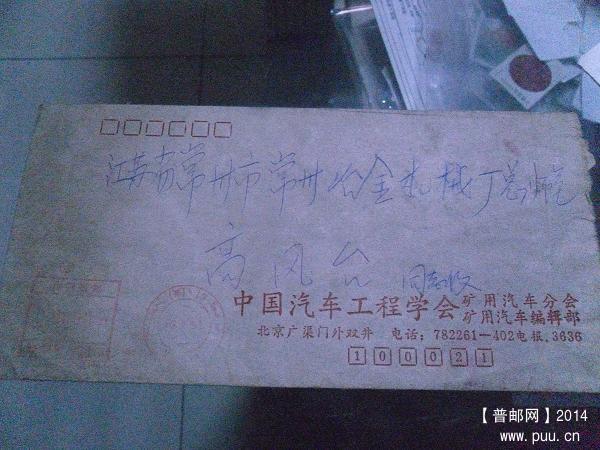 江苏省常州市常州冶金机械厂总师室
高风台 同志收
中国汽车工程学会 矿用汽车分会
矿用汽车编辑部
北京广渠门外双井 电话：782261—402电报.3636
100021
【普邮网】2014
www.puu.cn